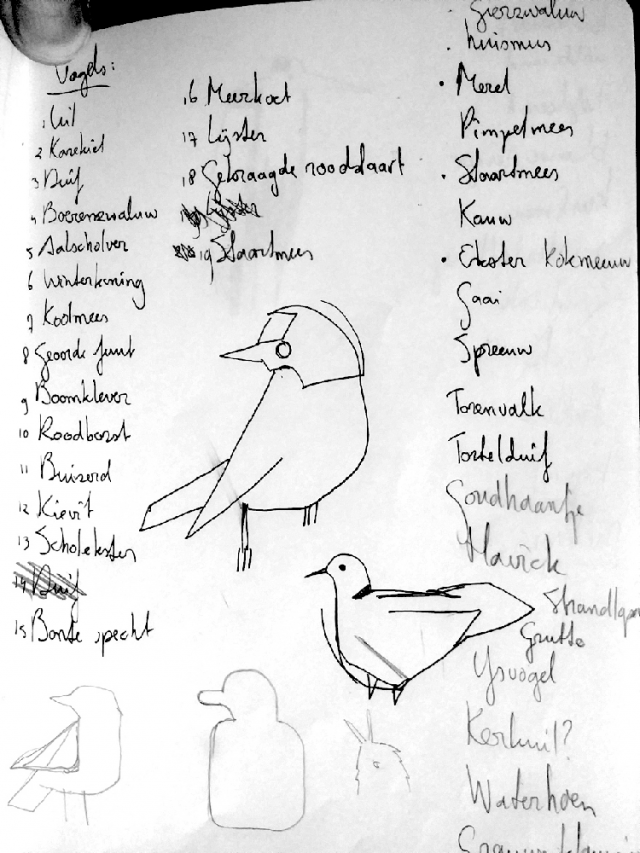 Vogels:
1 Uil
2 Karekiet
3 Duif
4 Boerenzwaluw
5 Aalscholver
6 Winterkoning
7 Koolmees
8 Geoorde fuut
9 Boomklever
10 Roodborst
11 Buizerd
12 Kievit
13 Scholekster
14 Duif
15 Bonte specht
16 Meerkoet
17 Lijster
18 Gekraagde roodstaart
19 Staartmees
Gierzwaluw
· huismus
· Merel
Pimpelmees
· Staartmees
Kauw
· Ekster Kokmeeuw
Gaai
Spreeuw
Torenvalk
Tortelduif
Goudhaantje
Havick
Strandlop
Grutto
IJsvogel
Kerkuil?
Waterhoen